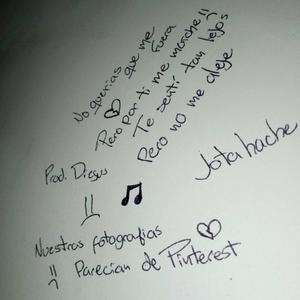 No querias que me
fuera
Pero por ti me marche
Te sentí tan lejos
Pero no me aleje
Jotahache
Prod. Diesus
Nuestras fotografias
Parecian de Pinterest